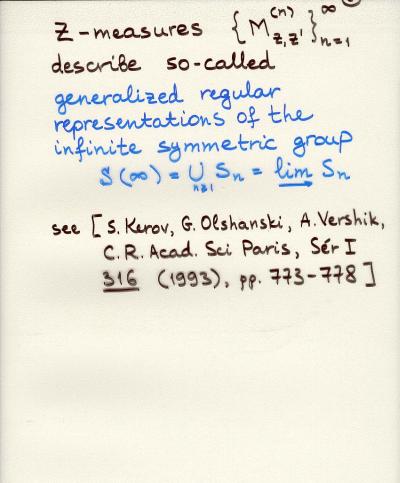 Z-measures {M^{(n)}_{z,z'}}^∞_{n=1}
describe so-called
generalized regular
representations of the
infinite symmetric group
S(∞) = ∪_{n≥1} S_n = lim→ S_n
see [S. Kerov, G. Olshanski, A. Vershik,
C.R. Acad. Sci Paris, Sér I
316 (1993), pp. 773-778]